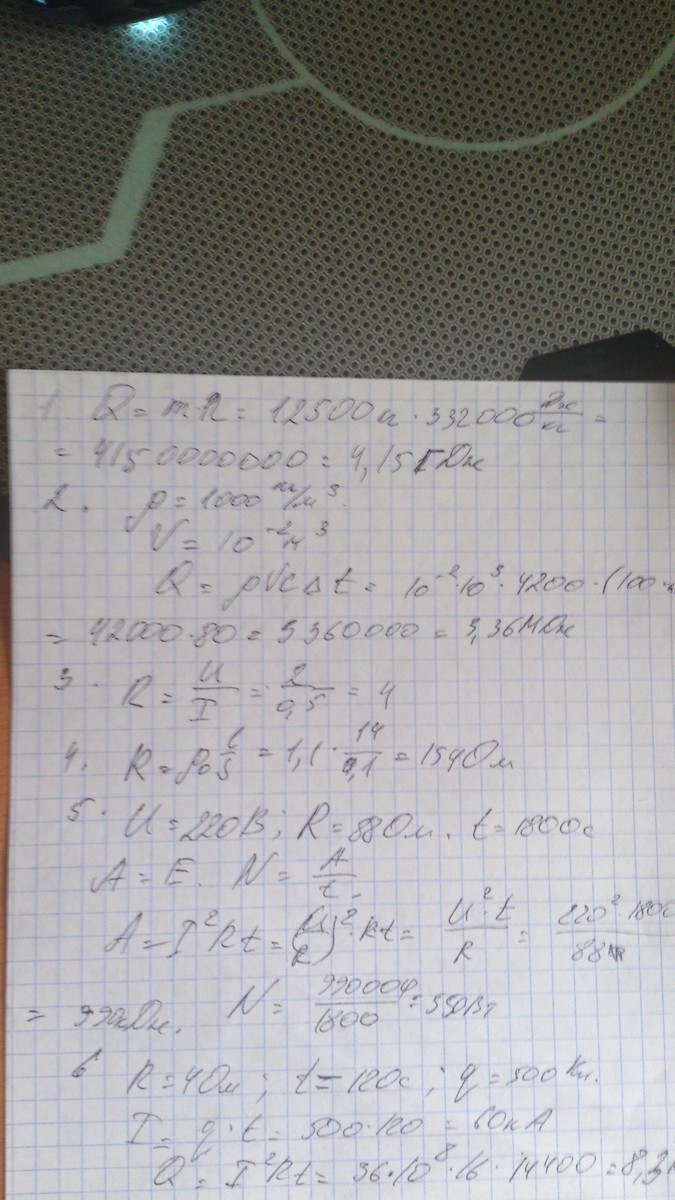 1 Q = m·λ = 12500 кг · 332000 Дж/кг =
= 4150000000 = 4,15 ГДж
2. ρ = 1000 кг/м³
V = 10⁻² м³
Q = ρVcΔt = 10⁻²·10³·4200·(100-
= 42000·80 = 3360000 = 3,36 МДж
3. R = U/I = 2/0,5 = 4
4. R = ρ₀ l/S = 1,1 · 14/0,1 = 154 Ом
5. U = 220В; R = 88 Ом. t = 1800с
A = E. N = A/t.
A = I²Rt = (U/R)²·Rt = U²·t/R = 220²·1800/88
= 990кДж. N = 990000/1800 = 550Вт
6 R = 4 Ом; t = 120с; q = 500 Кл.
I = q·t = 500·120 = 60кА
Q = I²Rt = 36·10⁸·16·14400 = 8,3